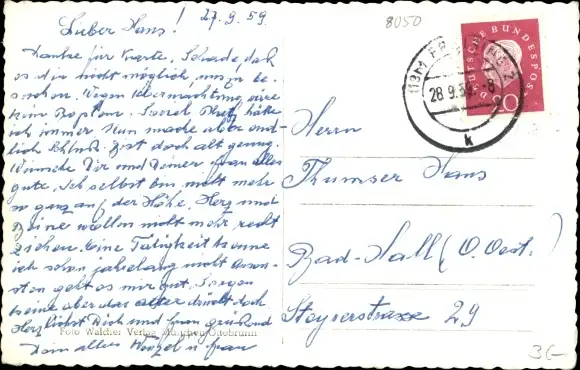 27.9.59
8050
Lieber Hans!
Danke für Karte, Schade, daß
es dir nicht möglich, uns zu be-
suchen. Wegen Übernachtung wäre
kein Problem. Soviel Platz hätte
ich immer. Nun mache aber end-
lich Schluß. Bist doch alt genug.
Wünsche Dir und Deiner Frau alles
gute. Ich selbst bin nicht mehr
so ganz auf der Höhe. Herz und
Beine wollen nicht mehr recht
Eine Tätigkeit könnte
ich schon jahrelang nicht
geht es mir gut. Sorgen
keine aber das Alter drückt doch
Herzlichst Dich und Frau grüßend
Dein alter u Frau
Foto Walcher Verlag München/Ottobrunn
DEUTSCHE BUNDESPOST
20
(13b)
28.9.59.-8
k
Herrn
Thumser Hans
Bad-Hall (O. Oest.)
Steyrerstrasse 29
3G-